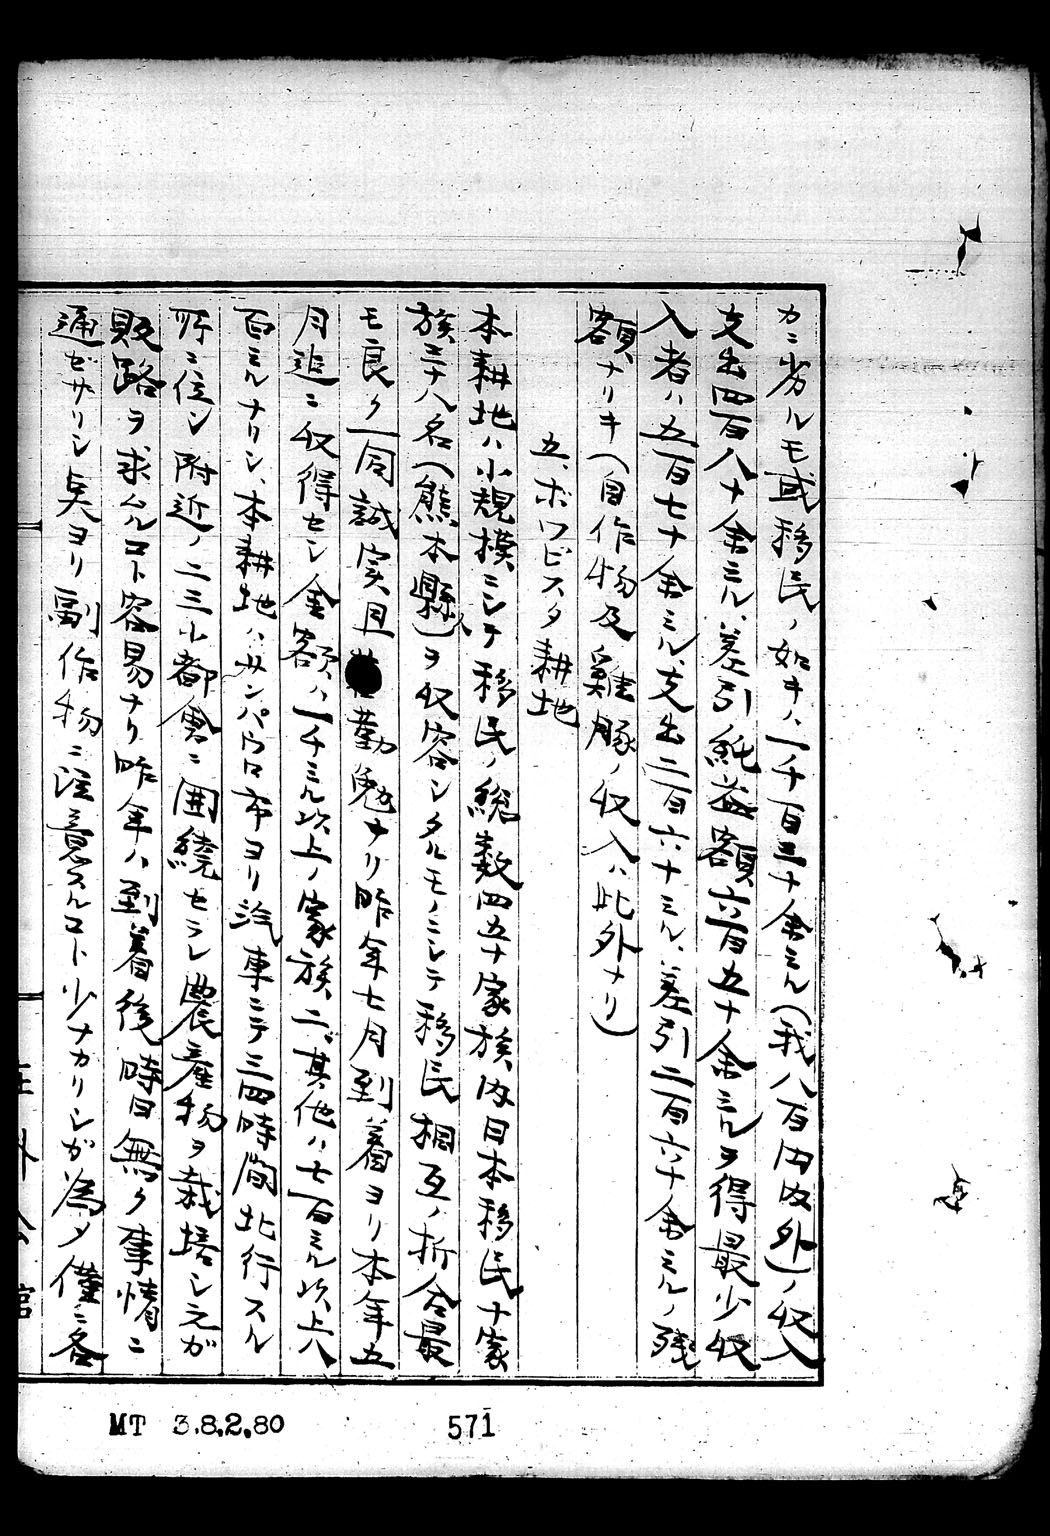 カニ劣ルモ或移民ノ如キハ一千百三十余ミル(我八百円内外)ノ収入
支出四百八十余ミル、差引純益額六百五十余ミルヲ得最少収
入者ハ五百七十余ミル支出二百六十ミル、差引二百六十余ミルノ残
額ナリキ(自作物及雞豚ノ収入ハ此外ナリ)
五、ボワビスタ耕地
本耕地ハ小規模ニシテ移民ノ総数四五十家族内日本移民十家
族三十八名(熊本縣人)ヲ収容シタルモノニシテ移民相互ノ折合最
モ良ク一同誠実且勤勉ナリ昨年七月到着ヨリ本年五
月迄ニ収得セシ金額ハ一千ミル以上ノ家族二、其他ハ七百ミル以上八
百ミルナリシ、本耕地ハサンパウロ市ヨリ汽車ニテ三四時間北行スル
所ニ位シ附近ノ二三小都會ニ囲繞セラレ農産物ヲ栽培シ之ガ
販路ヲ求ムルコト容易ナリ昨年ハ到着後時日無ク事情ニ
通ゼザリシ爲ヨリ副作物ニ注意スルコト少ナカリシガ為メ僅ニ各
在外公館
MT 3.8.2.80
571